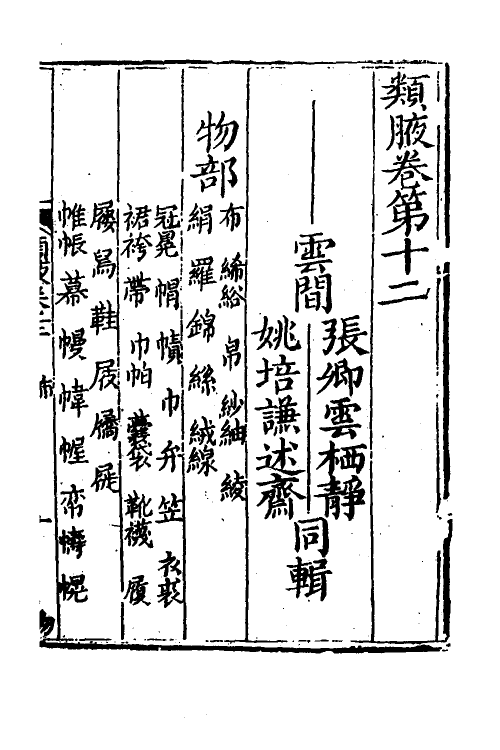 類腋卷第十二
雲間
張卿雲栖靜
姚培謙述齋
同輯
物部
布 絺綌 帛 紗紬 綾
絹 羅 錦 絲 絨線
冠冕 帽 幘 巾 弁 笠 衣裘
裙袴 帶 巾帕 囊袋 靴襪 履
屨 舄 鞋 屐 屩 屣
帷帳 幕 幔 幃 幄 帟 幬 幌